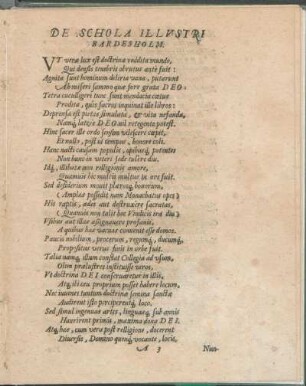 DE SCHOLA ILLVSTRI
BARDESHOLM.
VT verae lux est doctrinae reddita mundo,
Qui densis tenebris obrutus ante fuit:
Agnita sunt hominum deliria vana, putarunt
Ah miseri summo quae fore grata DEO.
Tetra cuculligeri tunc sunt mendacia caetus
Prodita, quis sacros inquinat ille libros:
Deprensa est pietas simulata, & vita nefanda,
Namq; latere DEO nil retegente potest.
Hinc sacer ille ordo sensim vilescere caepit,
Et nullo, post id tempus, honore coli.
Hanc nacti causam populis, quibusq; potentes
Non hanc in veteri sede tulere diu.
Idq;, illibatae non relligionis amore,
Quamvis hic multis multus in ore fuit.
Sed desiderium movit plures, bonorum,
(Ampla possedit nam Monachatus opes)
His raptis, aedes aut destruxere sacratas,
(Quamvis non talis hos Vindicis ira diu)
Vsibus aut illas assignavere profanis,
A quibus hae vacuae convenit esse domos.
Pauci nobilium, procerum, regumq;, ducumq,
Propositus verus finis in orbe fuit.
Talia namq; illam constat Collegia ad usum,
Olim praelustres instituisse viros.
Vt doctrina DEI conservaretur in illis,
Atq; ibi ceu proprium posset habere locum.
Nec juvenes tantum doctrinae semina sanctae
Audirent isto perciperentq; loco.
Sed simul ingenuas artes, linguasq; sub annis
Haurirent primis, maxima dona DEI.
Atq; hae, cum vera post relligione, docerent
Diversis, Dominus queis, vocante, locis.
A 3
Non